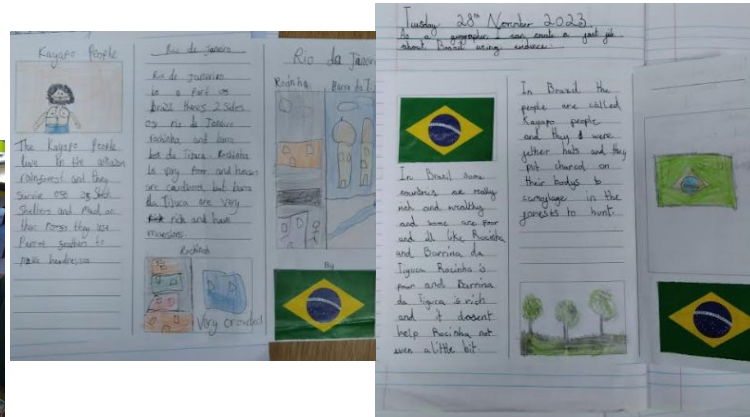 Kayapo People
The Kayapo People
live in the
rainforest and they
survive
Shelters and
they use
Parrot feathers to
make headdresses
Rio de janeiro
Rio de
is a Part
Brazil theres 2 sides
Rio de Janeiro
Rochinha and barra
da Tijuca. Rochinha
is very Poor and houses
are but bara
da Tijuca are very
rich and have
mansions.
Rochina
Very crowded
Rio da Janei
Rocinha
Barra da T
By
Tuesday 28th November 2023
As a geographer I can create a fact file
about Brazil using evidence.
In Brazil some
countries are really
rich and wealthy
and some are poor
and all like Rocinha
and Barrina da
Tijuca Rocinha is
poor and Barrina
da Tijuca is rich
and it dosent
help Rocinha not
even a little bit.
In Brazil the
people are called
Kayapo people
and they were
fether hats and they
put on
their bodys to
in the
to hunt.